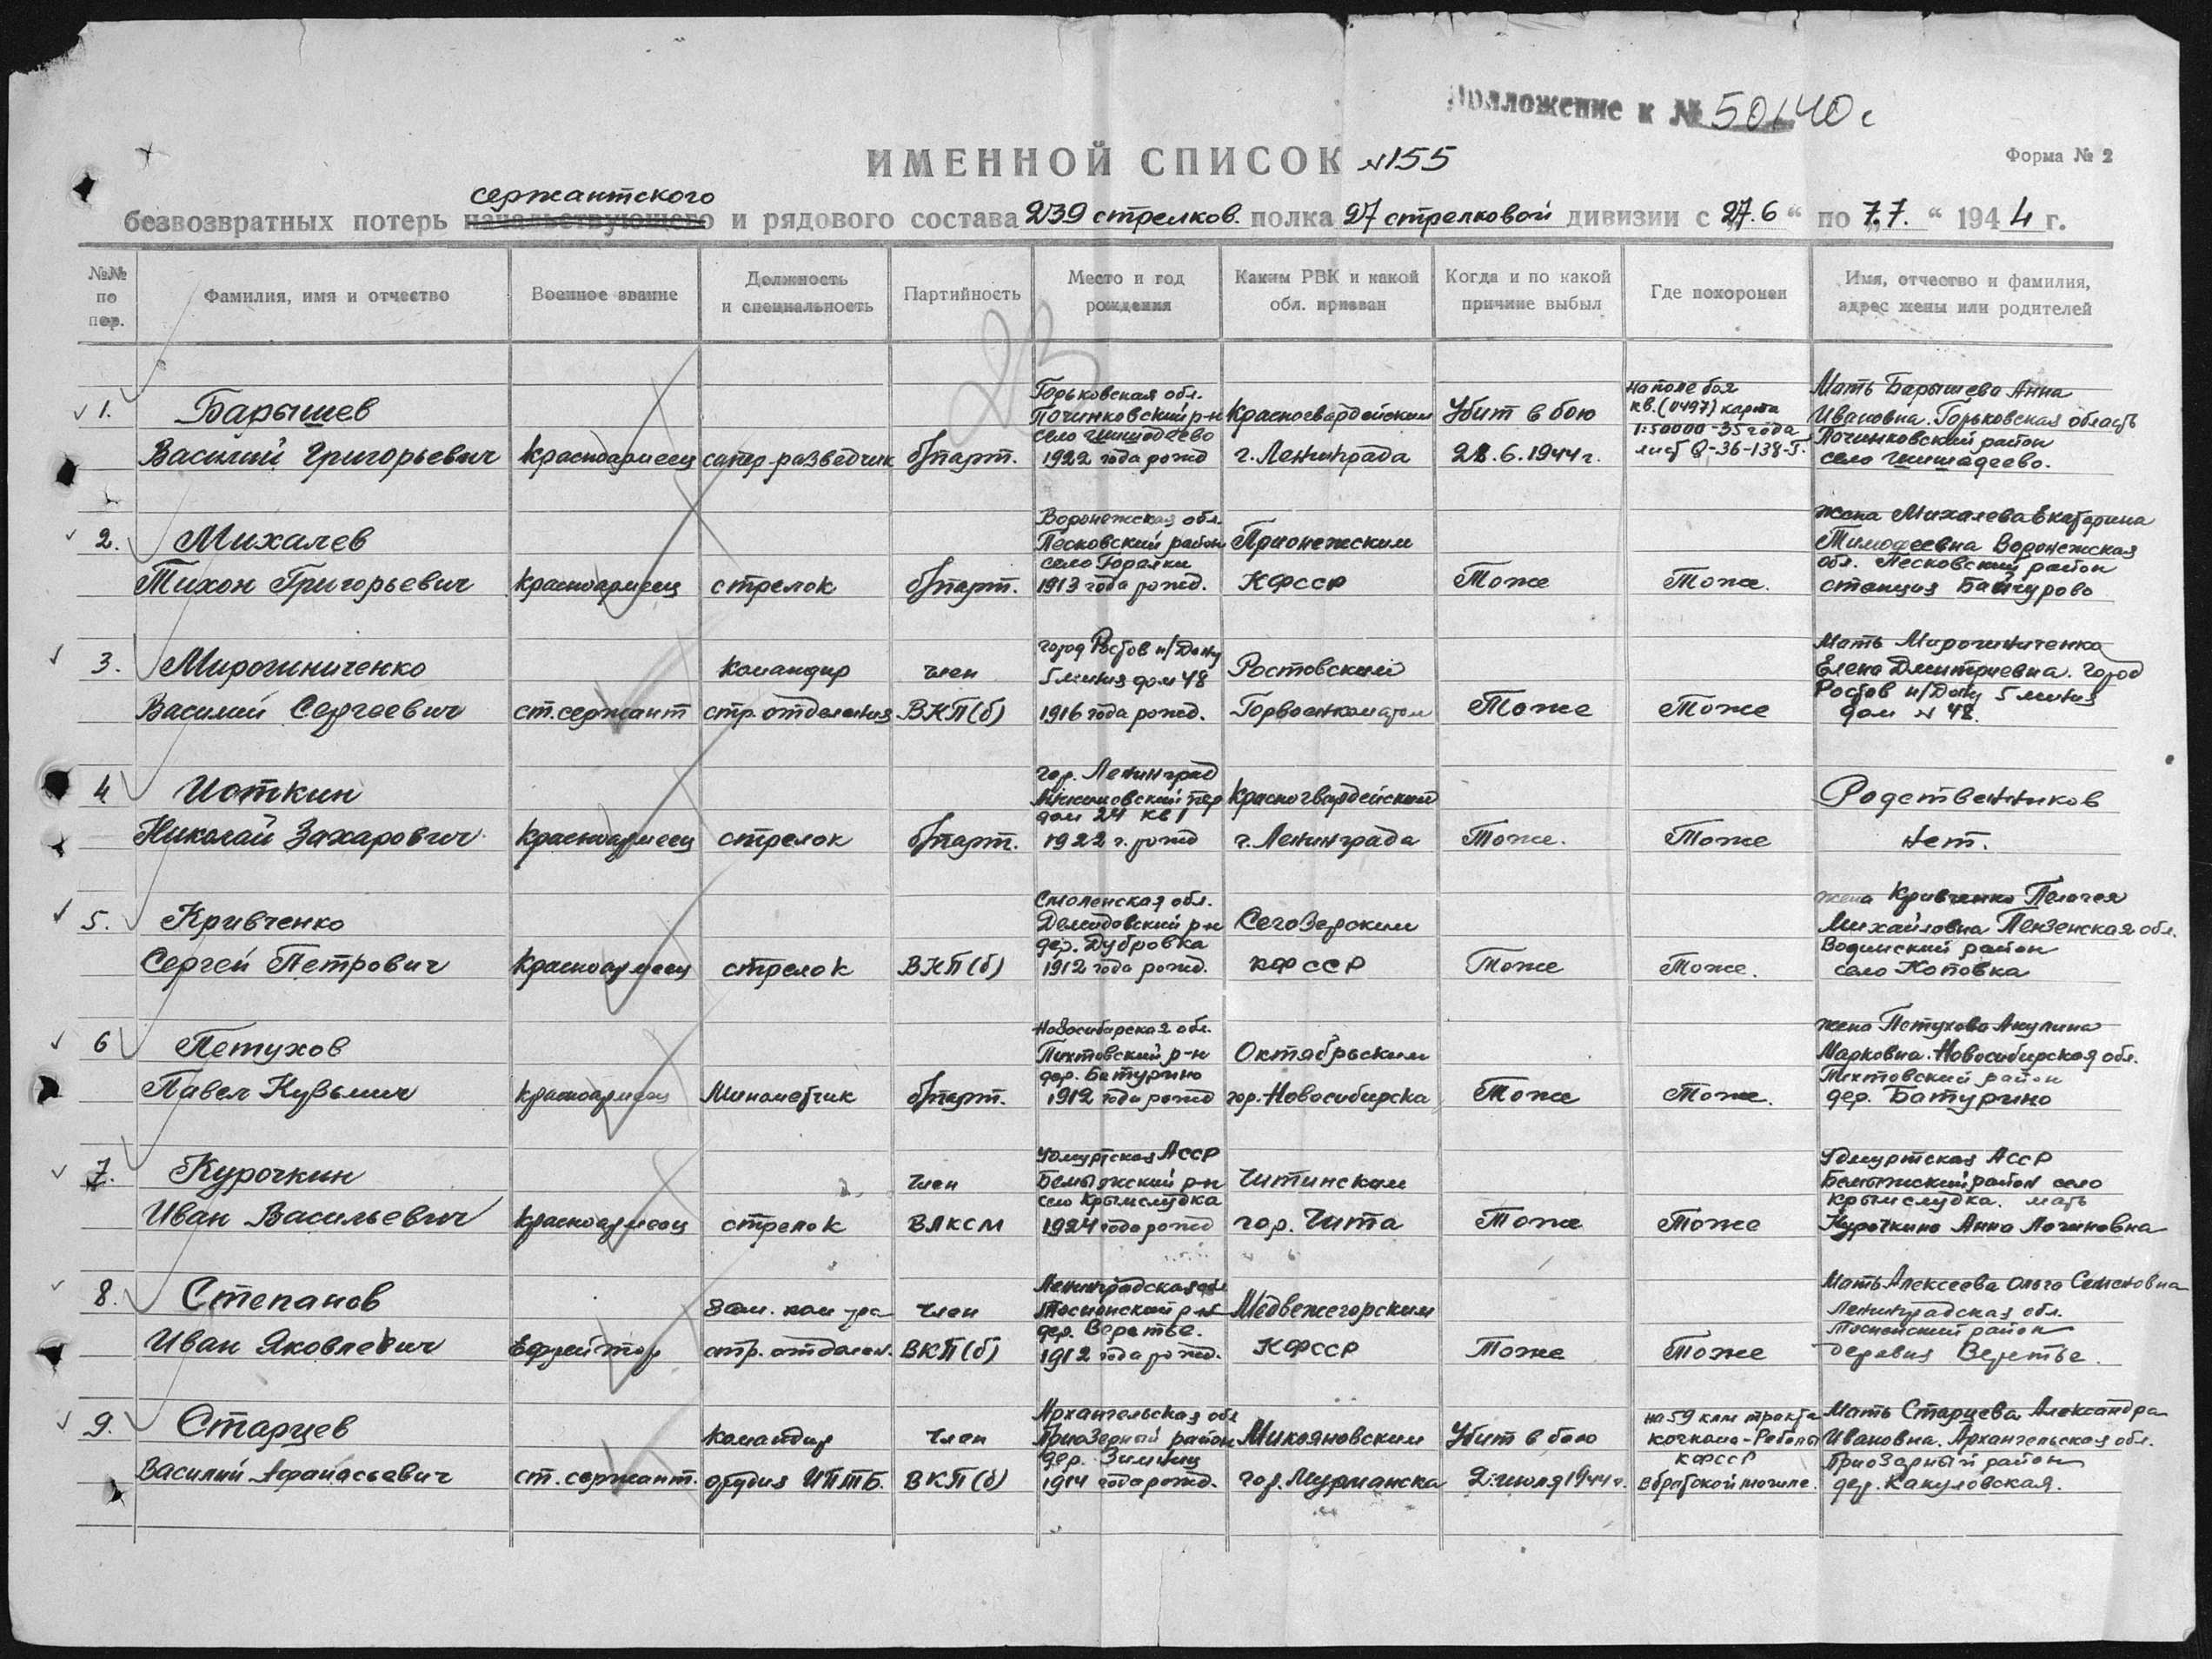 Приложение к № 50140с
ИМЕННОЙ СПИСОК №155
Форма № 2
сержантского
безвозвратных потерь начальствующего и рядового состава 239 стрелков. полка 27 стрелковой дивизии с „27.6“ по „7.7.“ 1944 г.
№№ по пор.
Фамилия, имя и отчество
Военное звание
Должность и специальность
Партийность
Место и год рождения
Каким РВК и какой обл. призван
Когда и по какой причине выбыл
Где похоронен
Имя, отчество и фамилия, адрес жены или родителей
1.
Барышев
Василий Григорьевич
красноармеец
сапер-разведчик
б/парт.
Горьковская обл.
Починковский р-н
село Шишадеево
1922 года рожд
Красногвардейским
г. Ленинграда
Убит в бою
28.6.1944г.
на поле боя
кв. (0497) карта
1:50000-35 года
лист Q-36-138-
Мать Барышева Анна
Ивановна. Горьковская область
Починковский район
село Шишадеево.
2.
Михалев
Тихон Григорьевич
красноармеец
стрелок
б/парт.
Воронежская обл.
Песковский район
село Горелки
1913 года рожд.
Прионежским
КФССР
Тоже
Тоже.
жена Михалева Екатерина
Тимофеевна Воронежская
обл. Песковский район
станция Байчурово
3.
Мирошниченко
Василий Сергеевич
ст. сержант
командир
стр. отделения
член
ВКП(б)
город Ростов н/Дону
5 линия дом 48
1916 года рожд.
Ростовский
Горвоенкоматом
Тоже
Тоже
Мать Мирошниченко
Елена Дмитриевна. город
Ростов н/Дону 5 линия
дом № 48.
4
Иоткин
Николай Захарович
красноармеец
стрелок
б/парт.
гор. Ленинград
пер
дом 24 кв 1
1922 г. рожд
Красногвардейский
г. Ленинграда
Тоже.
Тоже
Родственников
нет.
5.
Кривченко
Сергей Петрович
красноармеец
стрелок
ВКП(б)
Смоленская обл.
Демидовский р-н
дер. Дубровка
1912 года рожд.
Сегозерским
КФССР
Тоже
Тоже.
жена Кривченко Пелагея
Михайловна Пензенская обл.
район
село Котовка
6
Петухов
Павел Кузьмич
красноармеец
Минометчик
б/парт.
Новосибирская обл.
Пихтовский р-н
дер. Батурино
1912 года рожд
Октябрьским
гор. Новосибирска
Тоже
Тоже.
жена Петухова Акулина
Марковна. Новосибирская обл.
Пихтовский район
дер. Батурино
7.
Курочкин
Иван Васильевич
красноармеец
стрелок
член
ВЛКСМ
Удмуртская АССР
Бемыжский р-н
село Крымслудка
1924 года рожд
Читинским
гор. Чита
Тоже
Тоже
Удмуртская АССР
Бемыжский район село
Крымслудка. мать
Курочкина Анна Логиновна
8.
Степанов
Иван Яковлевич
Ефрейтор
Зам. ком-ра
стр. отделен.
член
ВКП(б)
Ленинградская обл
Тосненский р-н
дер. Веретье.
1912 года рожд.
Медвежегорским
КФССР
Тоже
Тоже
Мать Алексеева Ольга Семеновна
Ленинградская обл.
Тосненский район
деревня Веретье.
9.
Старцев
Василий Афанасьевич
ст. сержант.
командир
орудия ИПТБ.
член
ВКП(б)
Архангельская обл
Приозерный район
дер. Зимниц
1914 года рожд.
Микояновским
гор. Мурманска
Убит в бою
2 июля 1944г.
на 59 клм тракта
Кочкома-Реболы
КФССР
в братской могиле.
Мать Старцева Александра
Ивановна. Архангельская обл.
Приозерный район
дер. Какуловская.